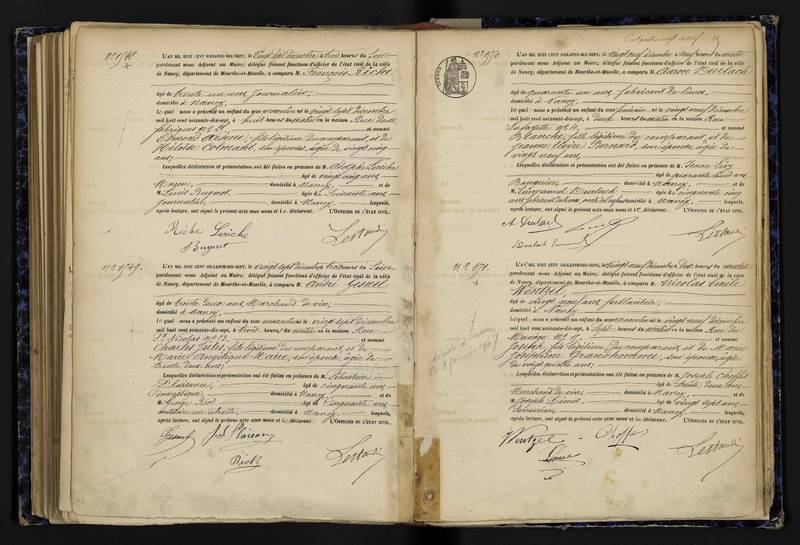 N° 1768.
L'AN MIL HUIT CENT SOIXANTE-DIX-SEPT, le Vingt sept décembre à trois heures du Soir
pardevant nous Adjoint au Maire, délégué faisant fonctions d'officier de l'état civil de la ville
de Nancy, département de Meurthe-et-Moselle, a comparu M. François Riche
âgé de trente un ans, journalier,
domicilié à Nancy,
lequel nous a présenté un enfant du sexe masculin né le vingt sept décembre
mil huit cent soixante-dix-sept, à huit heures du matin en la maison Rue des
fabriques n° 21, et nommé
Edmond Désiré, fils légitime du comparant et de
Héloïse Colmant, son épouse, âgée de vingt cinq
ans;
Lesquelles déclaration et présentation ont été faites en présence de M. Adolphe Leriche
âgé de vingt cinq ans
Maçon, domicilié à Nancy, et de
M. Louis Bugnot, âgé de Soixante ans
journalier, domicilié à Nancy, lesquels,
après lecture, ont signé le présent acte avec nous et le déclarant. L'OFFICIER DE L'ÉTAT CIVIL.
Riche Leriche
Bugnot
N° 1769.
L'AN MIL HUIT CENT SOIXANTE-DIX-SEPT, le vingt sept décembre trois heures du Soir
pardevant nous Adjoint au Maire, délégué faisant fonctions d'officier de l'état civil de la ville
de Nancy, département de Meurthe-et-Moselle, a comparu M. André
âgé de trente deux ans, Marchand de vin,
domicilié à Nancy,
lequel nous a présenté un enfant du sexe masculin né le vingt sept décembre
mil huit cent soixante-dix-sept, à trois heures du matin en la maison Rue
St Nicolas n° 13, et nommé
Charles Jules, fils légitime du comparant et de
Marie Angélique Maire, son épouse, âgée de
trente deux ans;
Lesquelles déclaration et présentation ont été faites en présence de M. Sébastien
Plaisance, âgé de cinquante ans
domestique domicilié à Nancy, et de
âgé de Cinquante ans
militaire en retraite, domicilié à Nancy, lesquels,
après lecture, ont signé le présent acte avec nous et le déclarant. L'OFFICIER DE L'ÉTAT CIVIL.
N° 1770
L'AN MIL HUIT CENT SOIXANTE-DIX-SEPT, le vingt neuf décembre à neuf heures du matin
pardevant nous Adjoint au Maire, délégué faisant fonctions d'officier de l'état civil de la ville
de Nancy, département de Meurthe-et-Moselle, a comparu M. Aaron Durlach
âgé de quarante un ans, fabricant de
domicilié à Nancy,
lequel nous a présenté un enfant du sexe féminin, né le vingt neuf décembre
mil huit cent soixante-dix-sept, à deux heures du matin en la maison Rue
Lafayette n° 4, et nommé
Blanche, fille légitime du comparant et de
Jeanne Bernard, son épouse, âgée de
vingt neuf ans,
Lesquelles déclaration et présentation ont été faites en présence de M. Isaac Lévy
âgé de quarante huit ans
Banquier, domicilié à Nancy, et de
M. Emmanuel Durlach âgé de cinquante cinq
ans, domicilié à Nancy, lesquels,
après lecture, ont signé le présent acte avec nous et le déclarant. L'OFFICIER DE L'ÉTAT CIVIL.
A. Durlach
Durlach
N° 1771.
L'AN MIL HUIT CENT SOIXANTE-DIX-SEPT, le vingt neuf décembre dix heures du matin
pardevant nous Adjoint au Maire, délégué faisant fonctions d'officier de l'état civil de la ville
de Nancy, département de Meurthe-et-Moselle, a comparu M. Nicolas Emile
Wentzel,
âgé de vingt neuf ans, tailleur,
domicilié à Nancy
lequel nous a présenté un enfant du sexe masculin né le vingt neuf décembre
mil huit cent soixante-dix-sept, à Sept heures du matin en la maison Rue du
Manège n° et nommé
Joseph, fils légitime du comparant et de Marie
Joséphine son épouse, âgée
de vingt quatre ans;
Lesquelles déclaration et présentation ont été faites en présence de M. Joseph
âgé de trente deux ans
Marchand de vins domicilié à Nancy, et de
M. Joseph âgé de vingt sept ans
Serrurier domicilié à Nancy, lesquels,
après lecture, ont signé le présent acte avec nous et le déclarant. L'OFFICIER DE L'ÉTAT CIVIL.
Wentzel